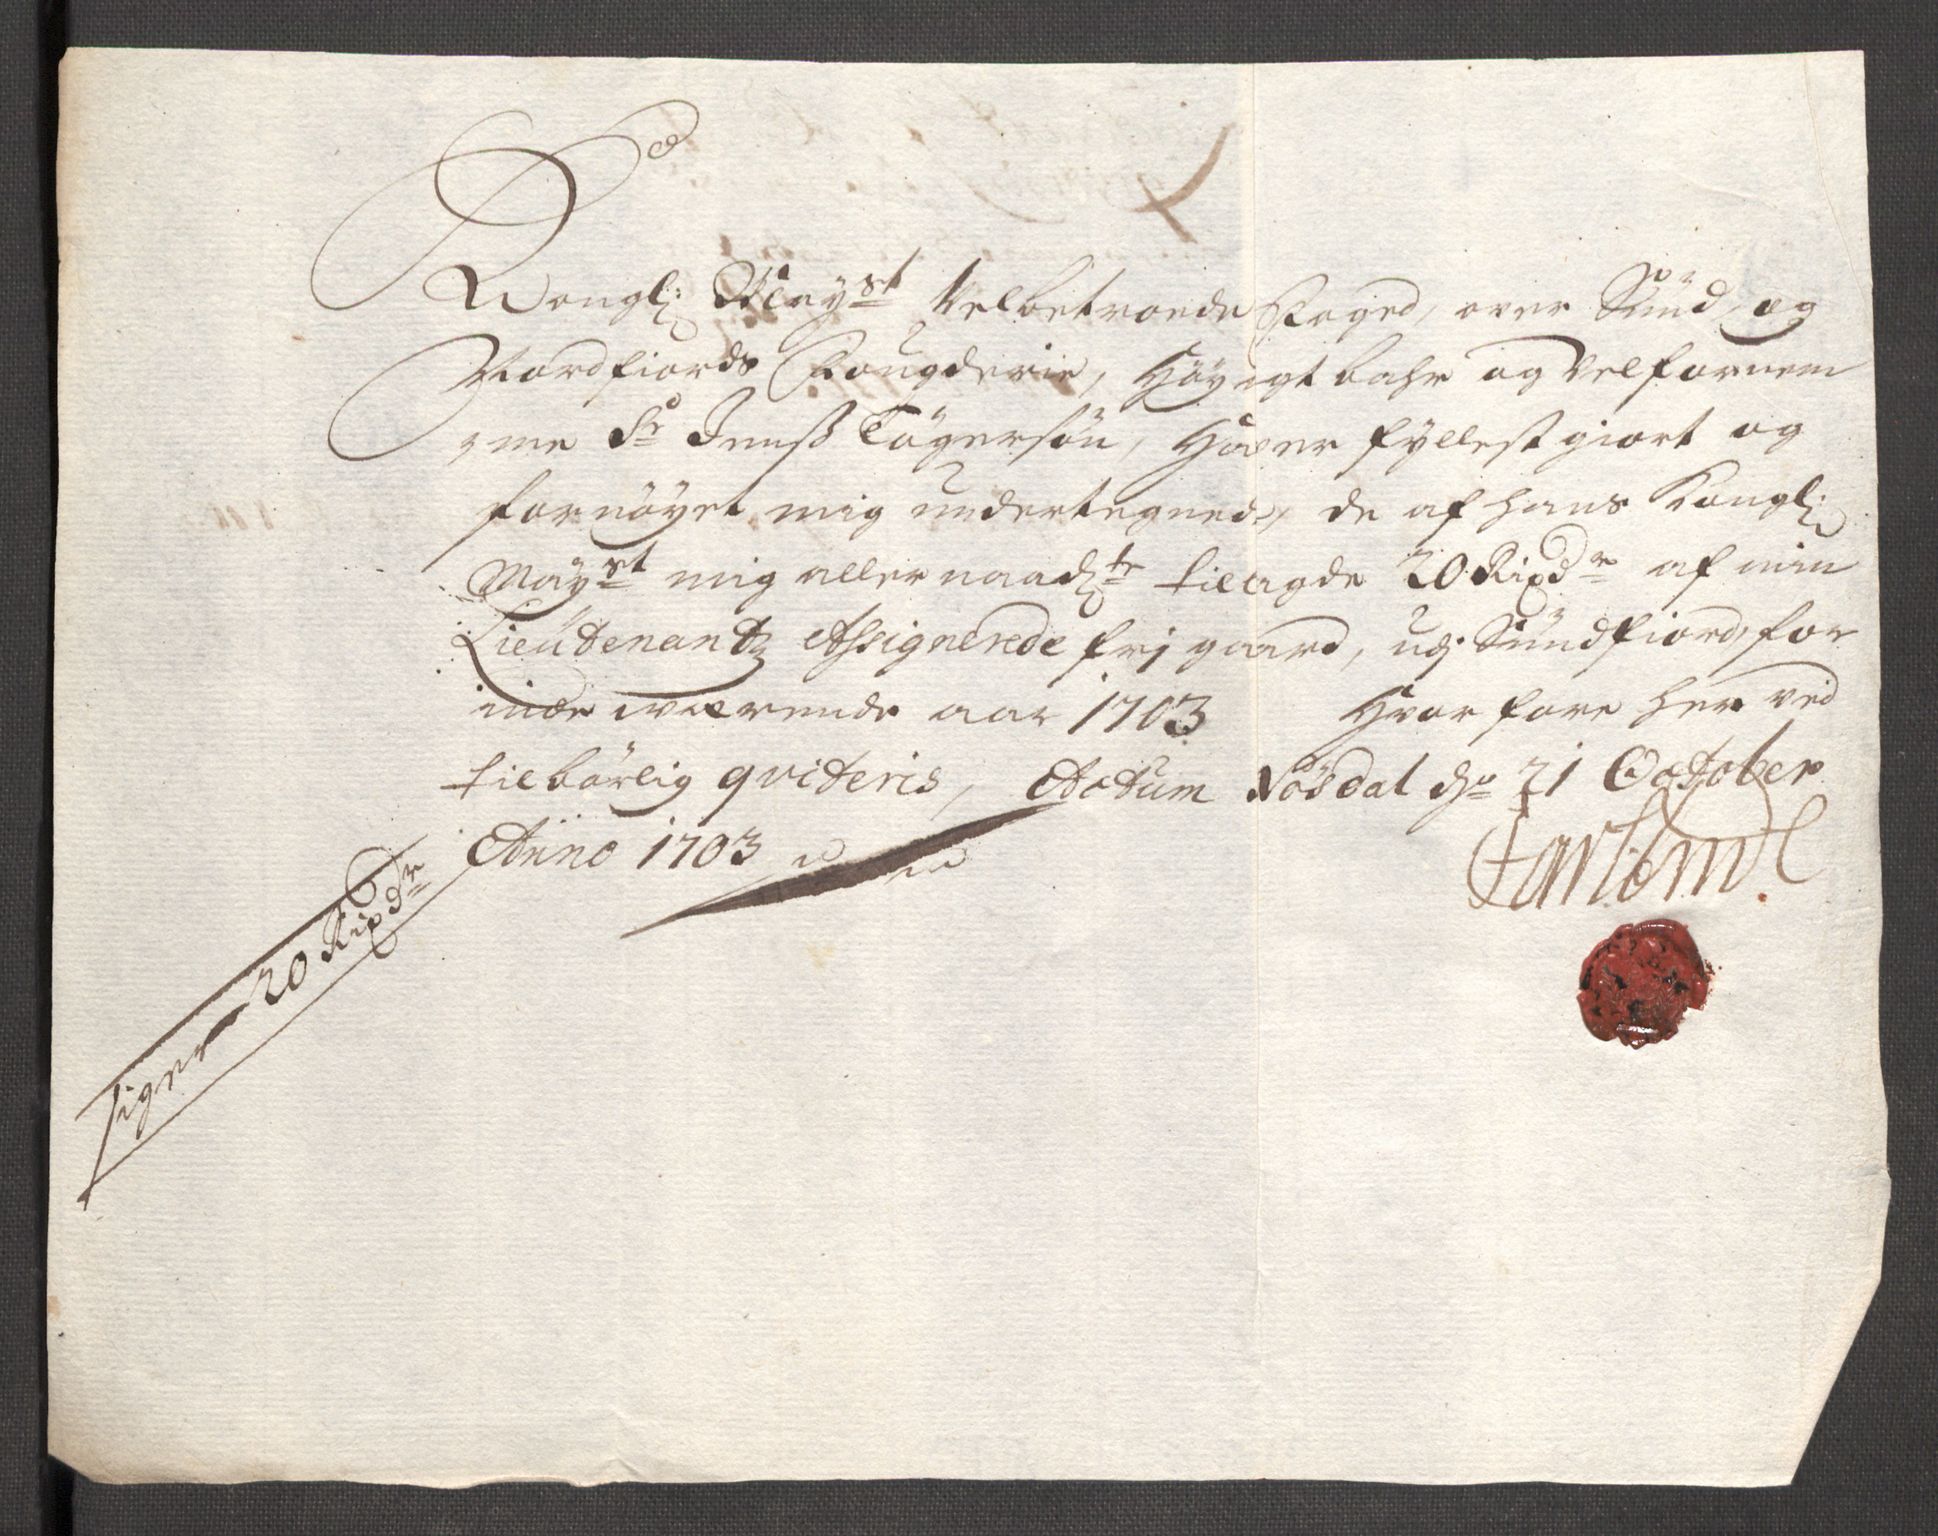 Kongl: Mayst Velbetroede Foged, over Sund, og
Nordfiords Fougderie, Höyagtbahr og Velfornem
me Sr Jenß Tögersön, Haver fyllestgiort og
fornöyet mig undertegned, de af hans Kongl:
Mayst mig allernaadste tilagde 20 Rixdr af min
Lieutenantz Assignerede frj gaard, udj Sundfiord, for
inde werende aar 1703 Hvorfore her ved
tilbörlig qviteris, Actum dn 21 October
Anno 1703
siger 20 Rixdr